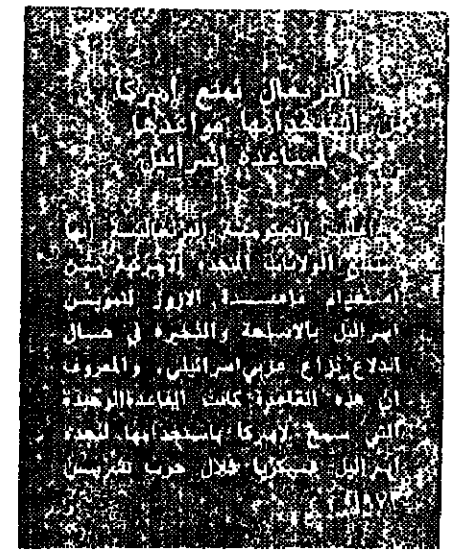 البرتغال تمنع أميركا
من استخدامها قواعدها
لمساعدة إسرائيل
اعلنت الحكومة البرتغالية انها
ستمنع الولايات المتحدة الاميركية من
استخدام قاعدة الازور لتموين
اسرائيل بالاسلحة والذخيرة في حال
اندلاع نزاع عربي اسرائيلي، والمعروف
ان هذه القاعدة كانت القاعدة الوحيدة
التي سمح لاميركا باستخدامها لنجدة
اسرائيل عسكريا خلال حرب تشرين